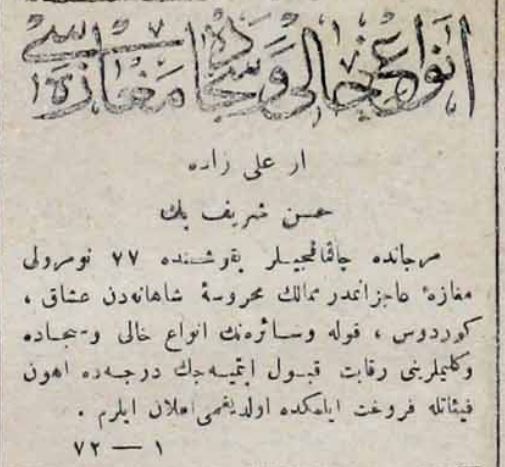 انواع خالی و سجاده مغازه سی
ار علی زاده
حسن شریف بك
مرجانده چاقماقجیلر یقوشنده ٧٧ نومرولی
مغازهٔ عاجزانمدر ممالك محروسهٔ شاهانه‌دن عشاق ،
كوردوس ، قوله وسائره‌نك انواع خالی وسجاده
وكلیملرینی رقابت قبول ایتمیه‌جك درجه‌ده اهون
فیئاتله فروخت ایلمكده اولدیغمی اعلان ایلرم .
١ — ٧٢